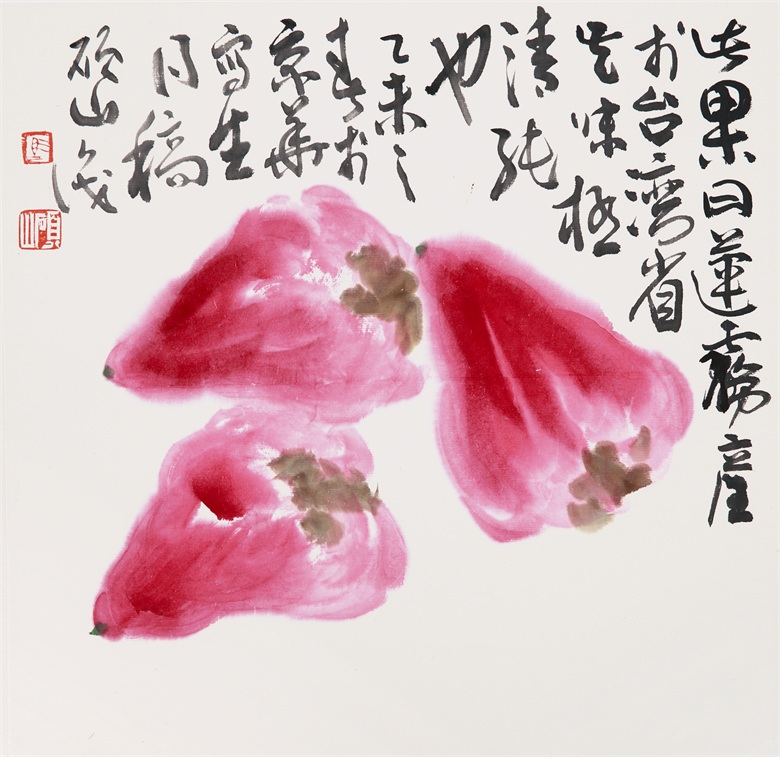 此果曰蓮霧產
於台灣省
其味極
清純
也
乙未之
春於
京華
寫生
稿
碩山